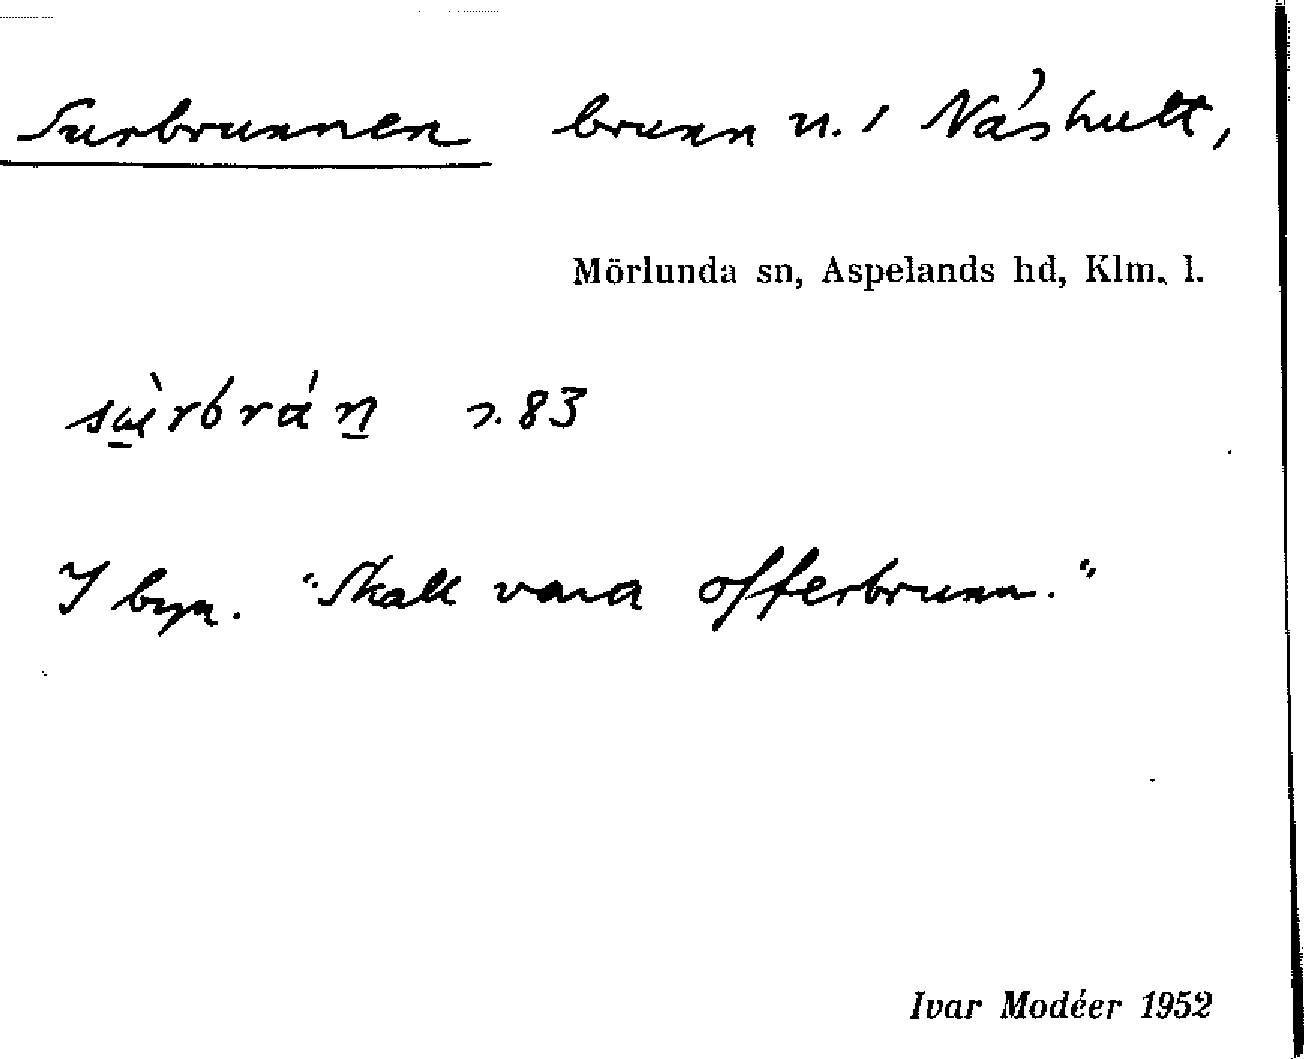 Surbrunnen brunn n. i Nåshult,
Mörlunda sn, Aspelands hd, Klm. l.
s. 83
I byn. "Skall vara offerbrunn."
Ivar Modéer 1952